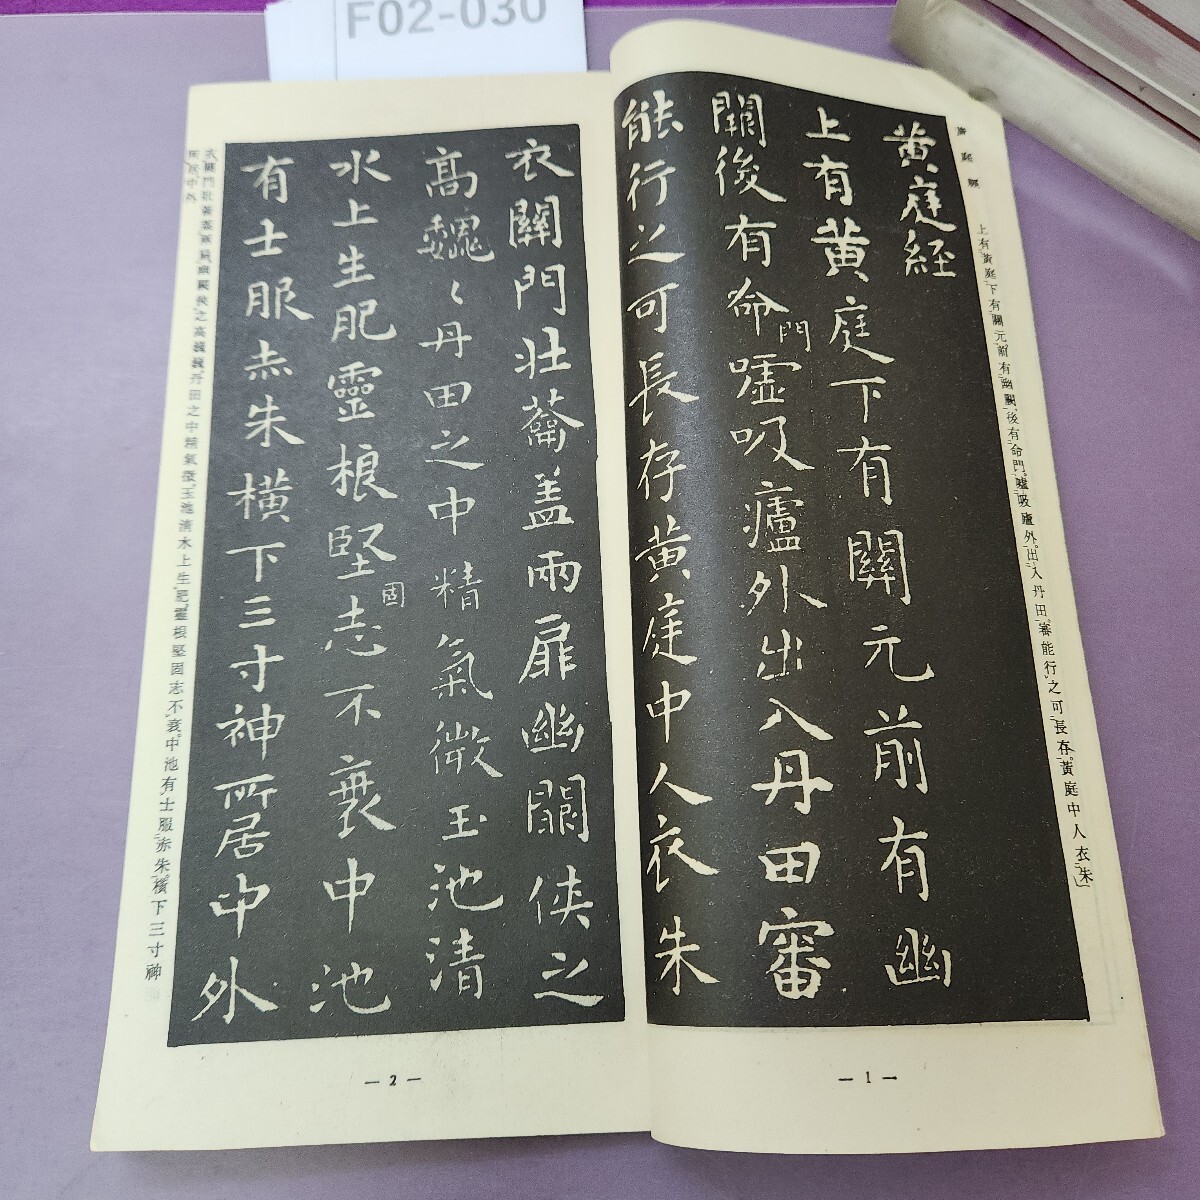 F02-030
黄庭経
上有黄庭下有關元前有幽
闕後有命門嘘吸廬外出入丹田審
能行之可長存黄庭中人衣朱
衣關門壯蘥蓋兩扉幽闕俠之
高巍〻丹田之中精氣微玉池清
水上生肥靈根堅固志不衰中池
有士服赤朱橫下三寸神所居中外
黄庭經
上有黄庭下有關元前有幽闕後有命門嘘吸廬外出入丹田審能行之可長存黄庭中人衣朱
— 1 —
衣關門壯蘥蓋兩扉幽闕俠之高巍巍丹田之中精氣微玉池清水上生肥靈根堅固志不衰中池有士服赤朱橫下三寸神
所居中外
— 2 —